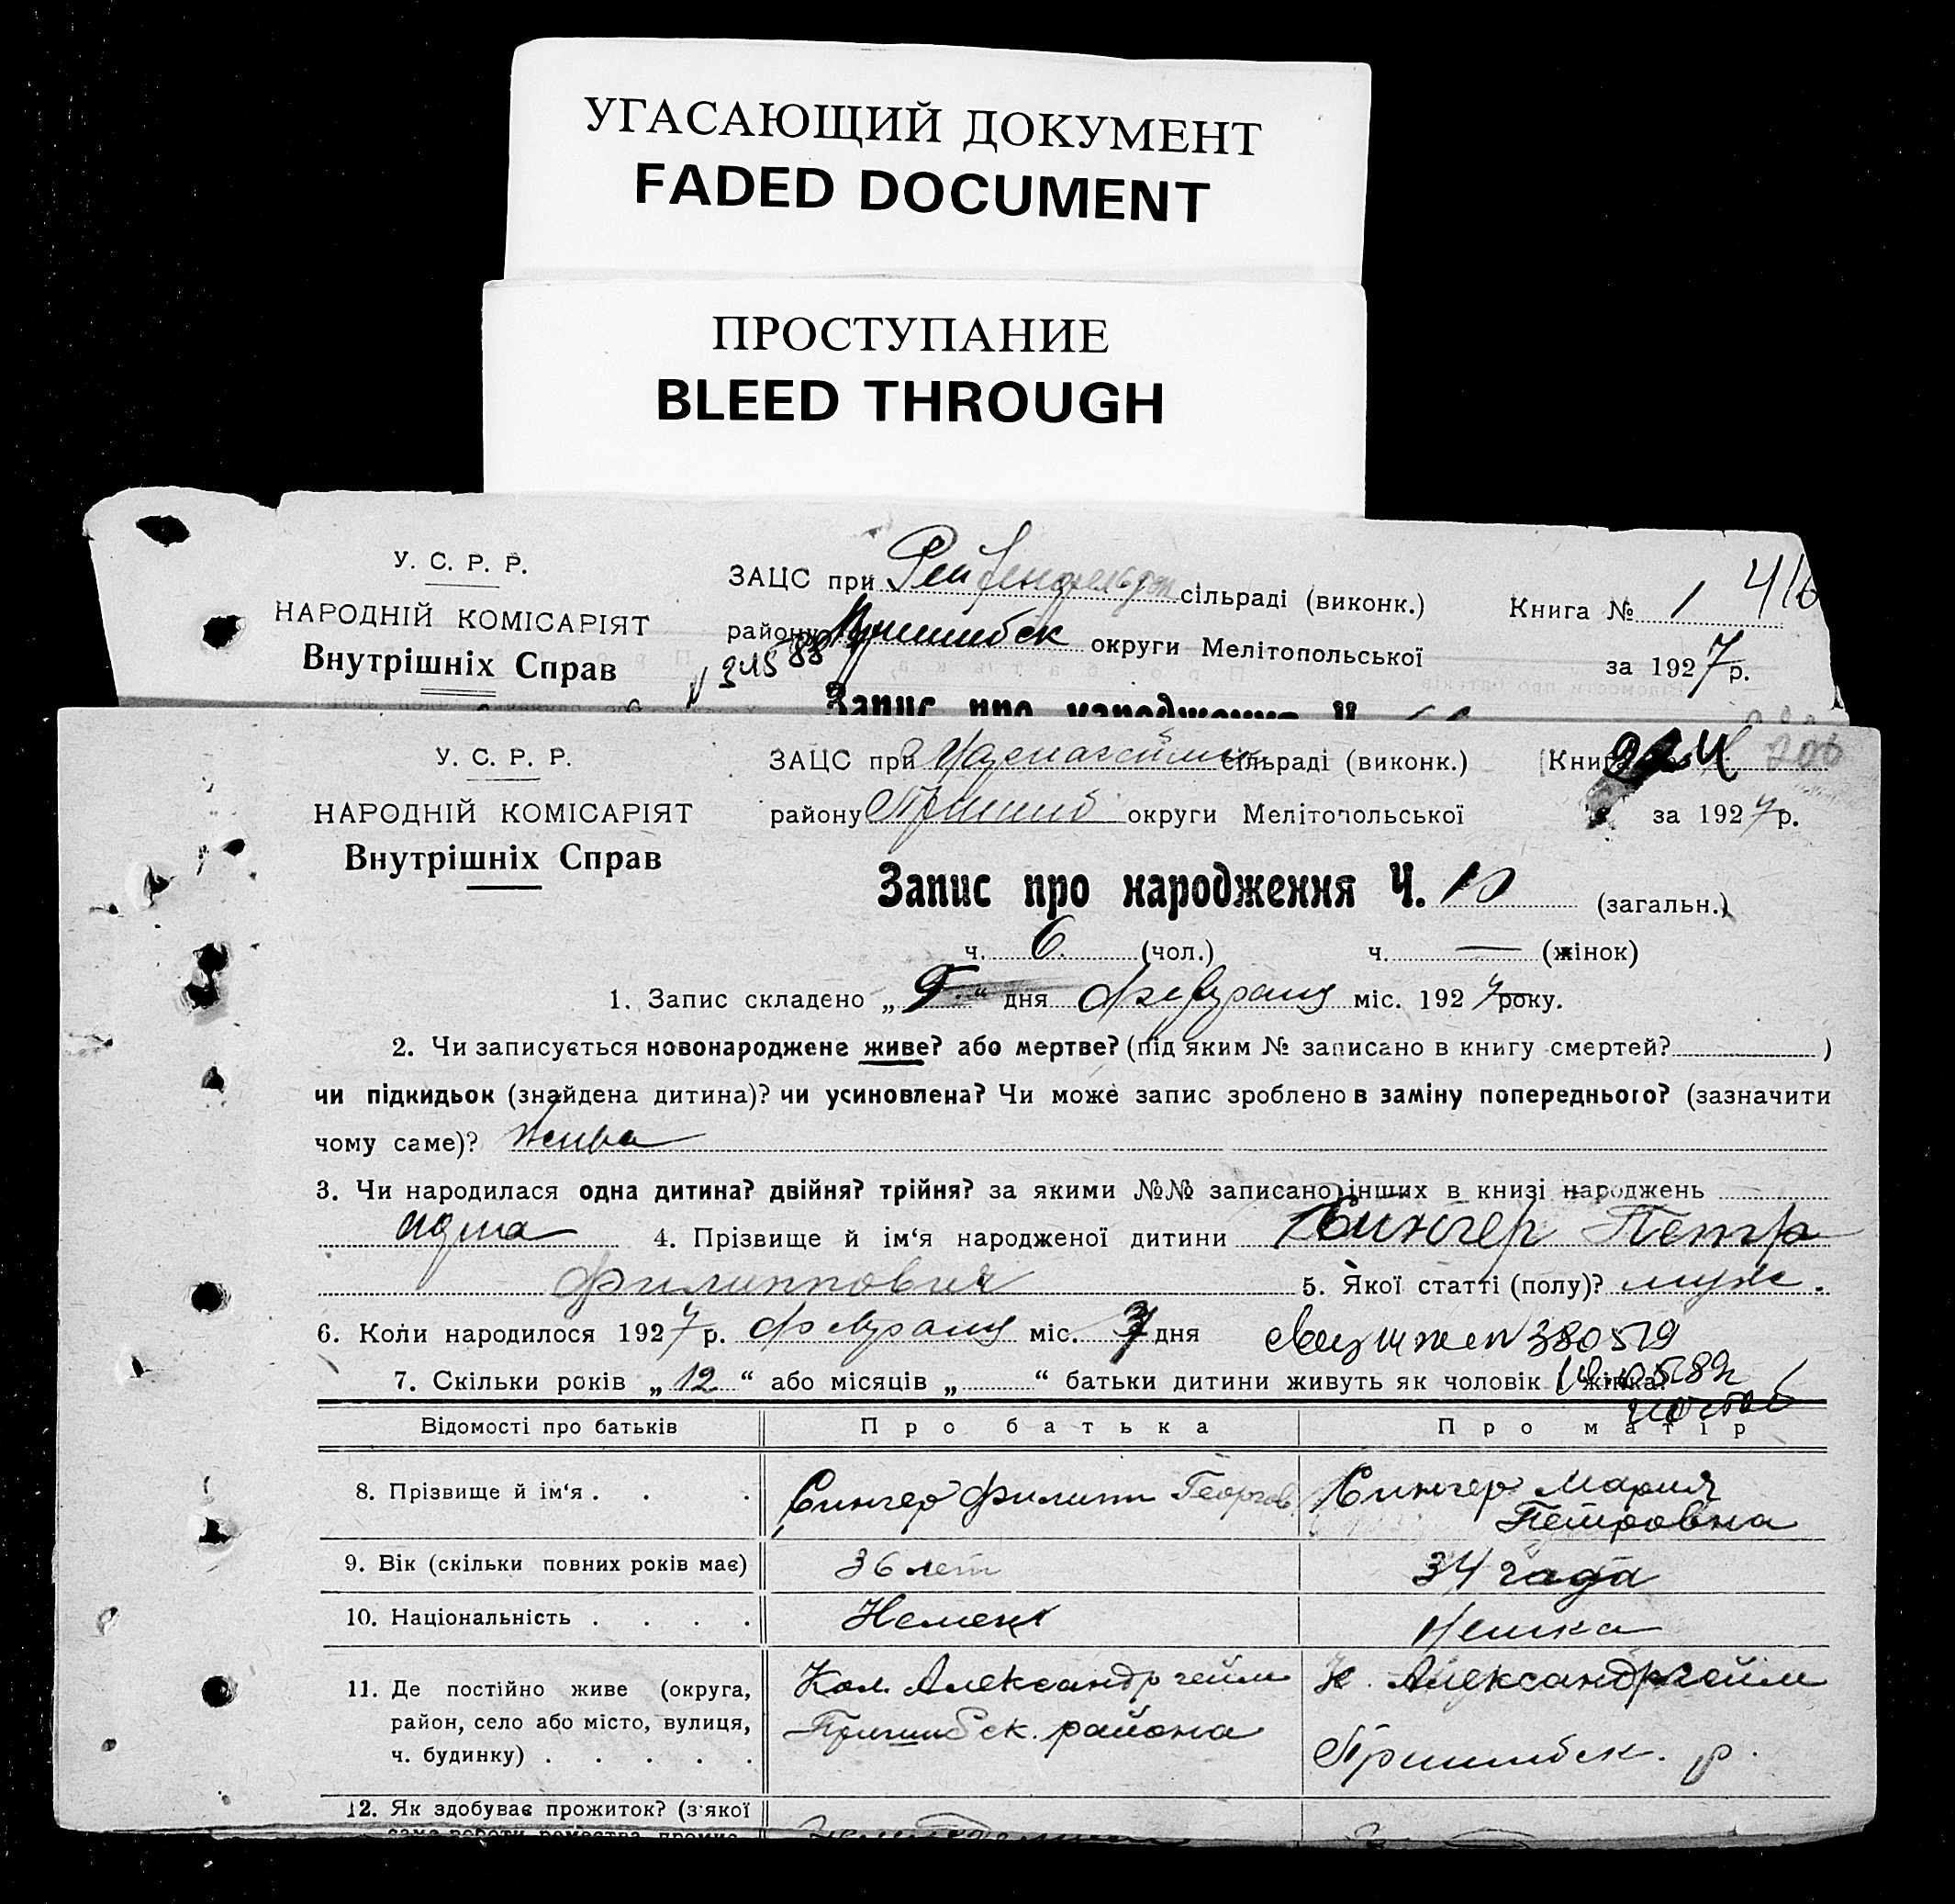 УГАСАЮЩИЙ ДОКУМЕНТ
FADED DOCUMENT
ПРОСТУПАНИЕ
BLEED THROUGH
У. С. Р. Р.
НАРОДНІЙ КОМІСАРІЯТ
Внутрішніх Справ
ЗАЦС при Рейфенфельдск сільраді (виконк.)
Книга № 1 416
району Пришибск округи Мелітопольської
за 1927 р.
Запис про народження Ч.
У. С. Р. Р.
НАРОДНІЙ КОМІСАРІЯТ
Внутрішніх Справ
ЗАЦС при сільраді (виконк.)
Книга 206
району Пришиб округи Мелітопольської
за 1927 р.
Запис про народження Ч. 10 (загальн.)
ч. 6 (чол.) ч. — (жінок)
1. Запис складено „9“ дня февраля міс. 1927 року.
2. Чи записується новонароджене живе? або мертве? (під яким № записано в книгу смертей? )
чи підкидьок (знайдена дитина)? чи усиновлена? Чи може запис зроблено в заміну попереднього? (зазначити
чому саме)? жива
3. Чи народилася одна дитина? двійня? трійня? за якими №№ записано інших в книзі народжень
одна 4. Прізвище й ім‘я народженої дитини Сингер Петр
Филиппович 5. Якої статті (полу)? муж.
6. Коли народилося 1927 р. февраля міс. 7 дня
7. Скільки років „12“ або місяців „ “ батьки дитини живуть як чоловік і жінка?
Відомості про батьків Про батька Про матір
8. Прізвище й ім‘я . . . Сингер Филипп Георгов Сингер Мария
Петровна
9. Вік (скільки повних років має) 36 лет 34 года
10. Національність . . . . Немец Немка
11. Де постійно живе (округа, Кол. Александргейм К. Александргейм
район, село або місто, вулиця, Пришибск. района Пришибск. р.
ч. будинку) . . . . .
12. Як здобуває прожиток? (з якої